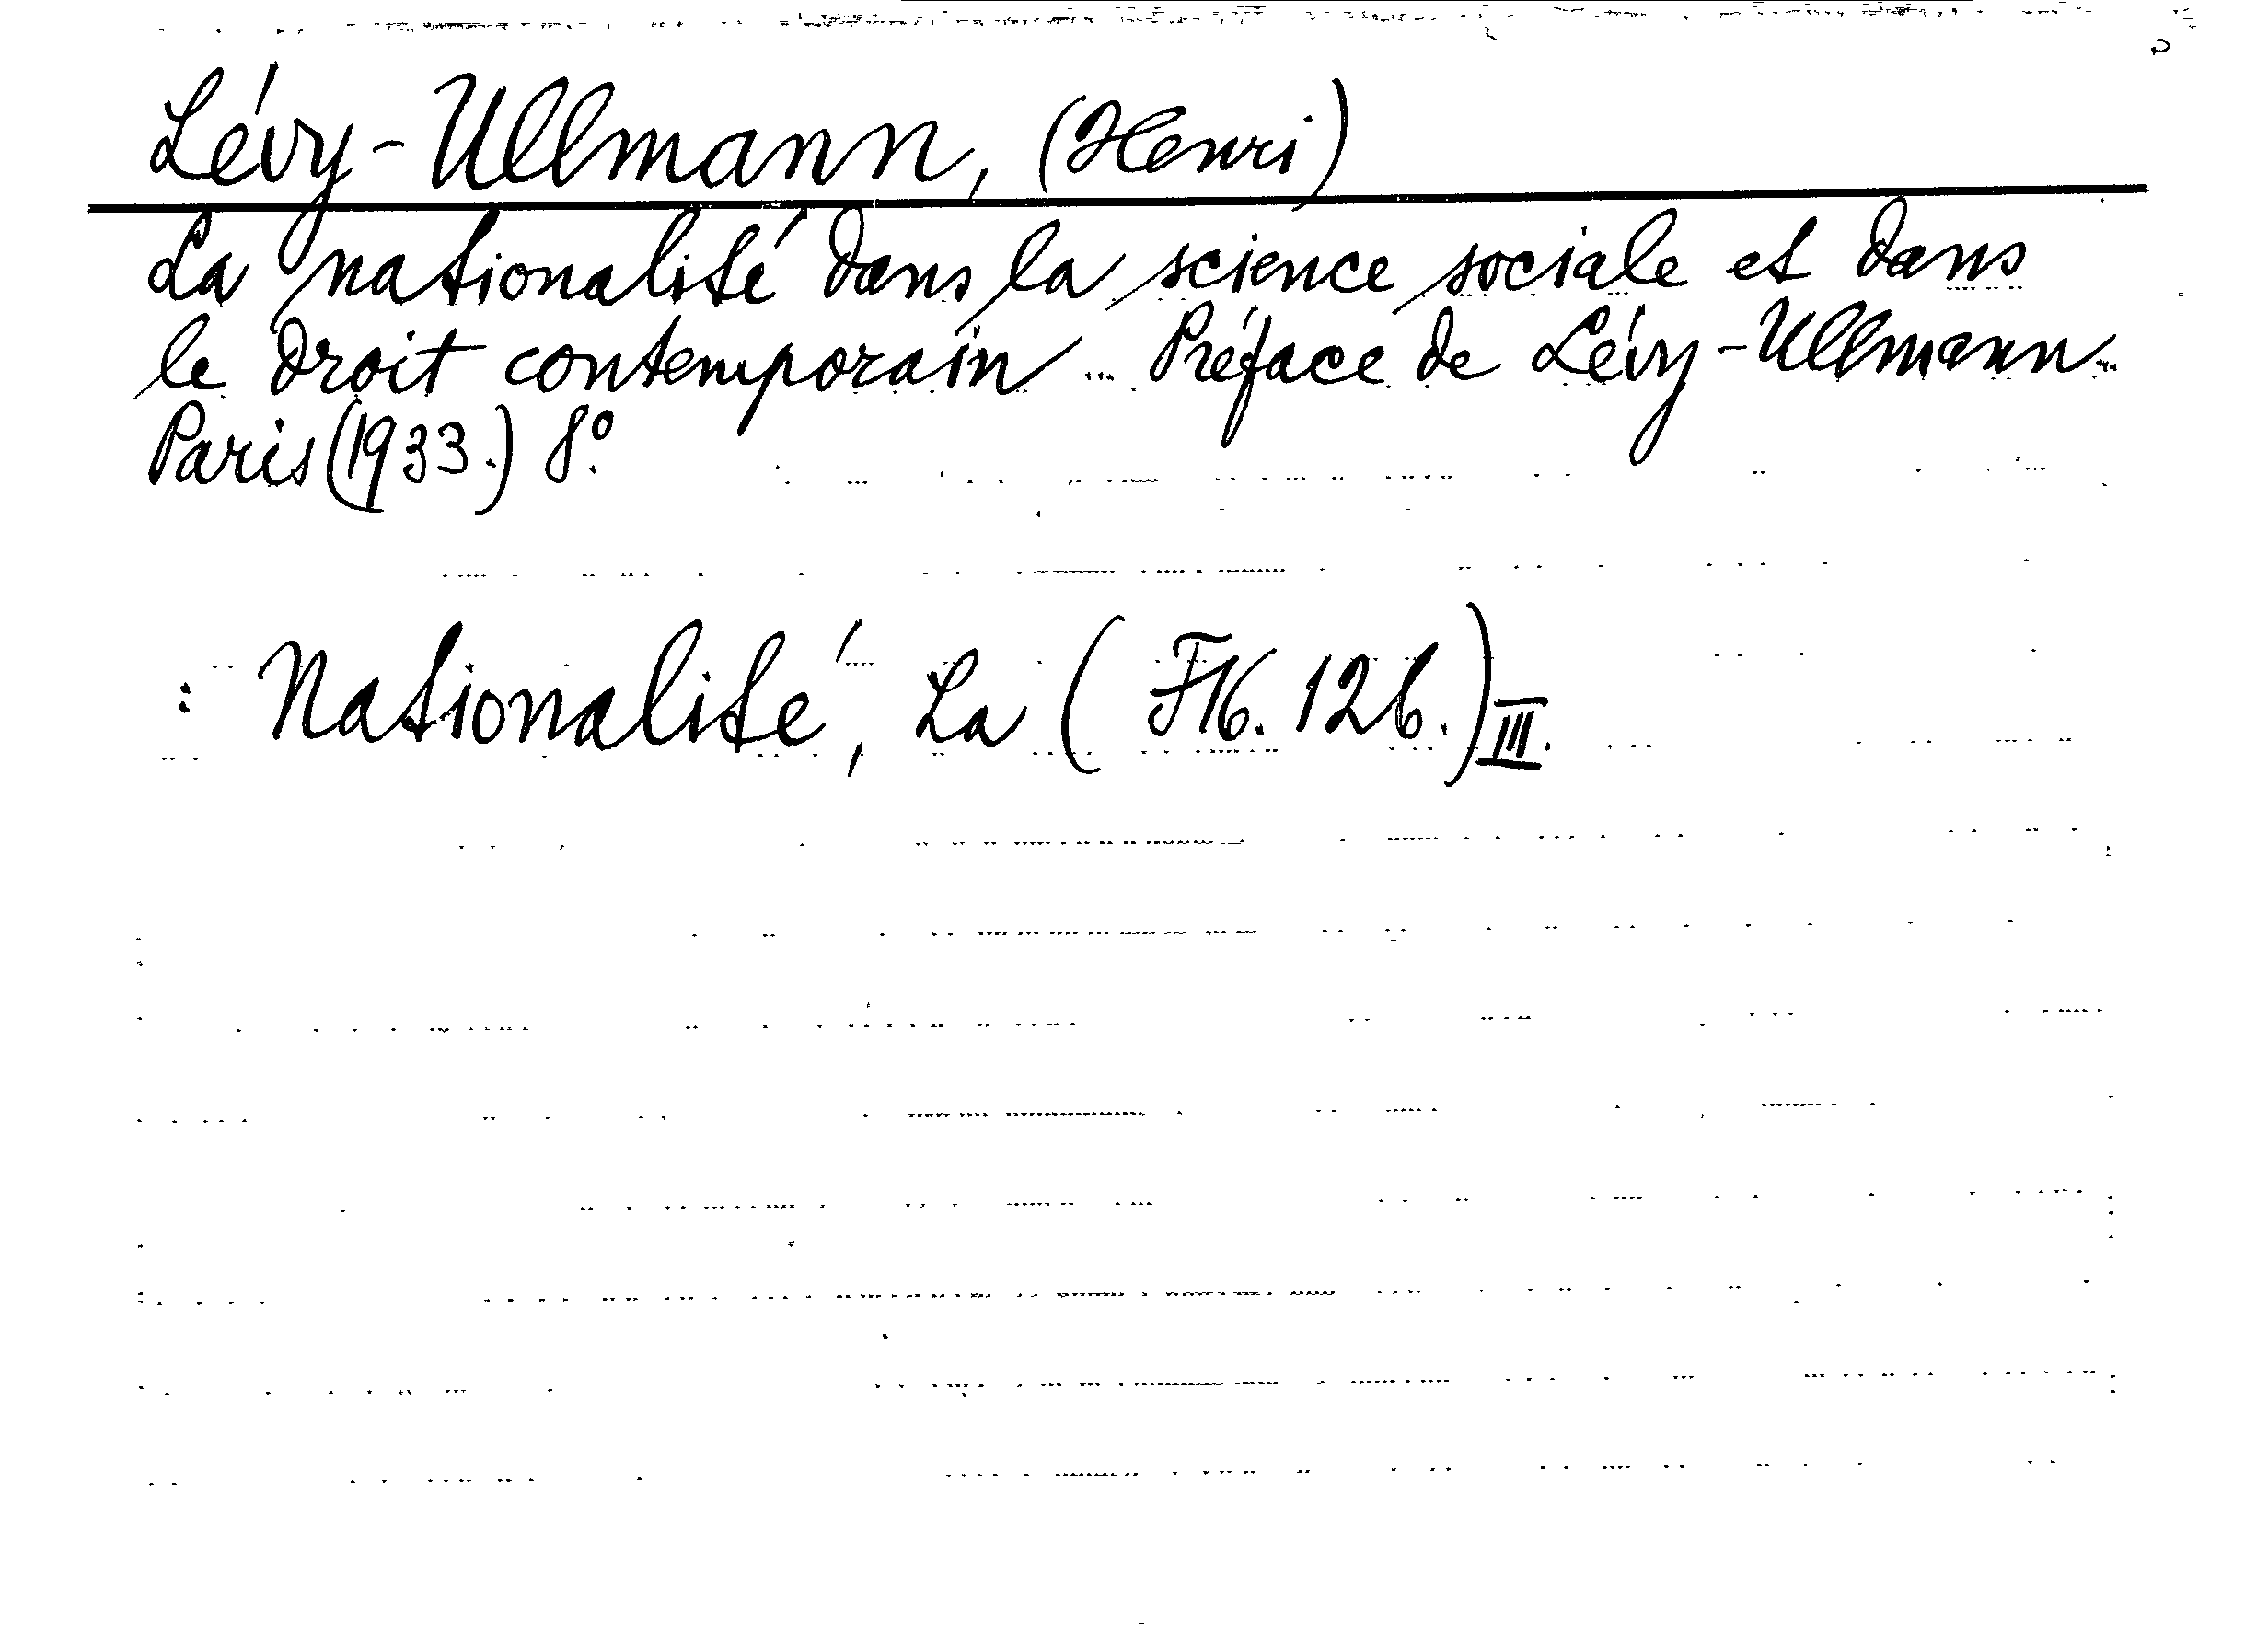 Lévy-Ullmann, (Henri)
La nationalité dans la science sociale et dans
le droit contemporain ... Préface de Lévy-Ullmann...
Paris (1933.) 8°.
: Nationalité, La ( F16. 126.) III.